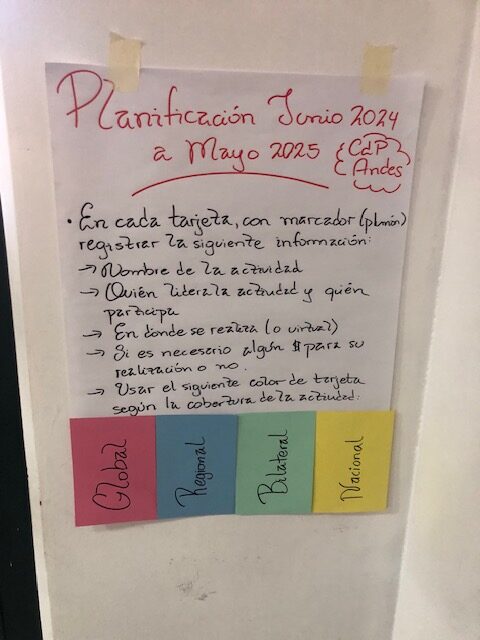 Planificación Junio 2024
a Mayo 2025
CdP
Andes
• En cada tarjeta, con marcador (plumón)
registrar la siguiente información:
→ Nombre de la actividad
→ Quién lidera la actividad y quién
participa
→ En donde se realiza (o virtual)
→ Si es necesario algún $ para su
realización o no.
→ Usar el siguiente color de tarjeta
según la cobertura de la actividad:
Global
Regional
Bilateral
Nacional